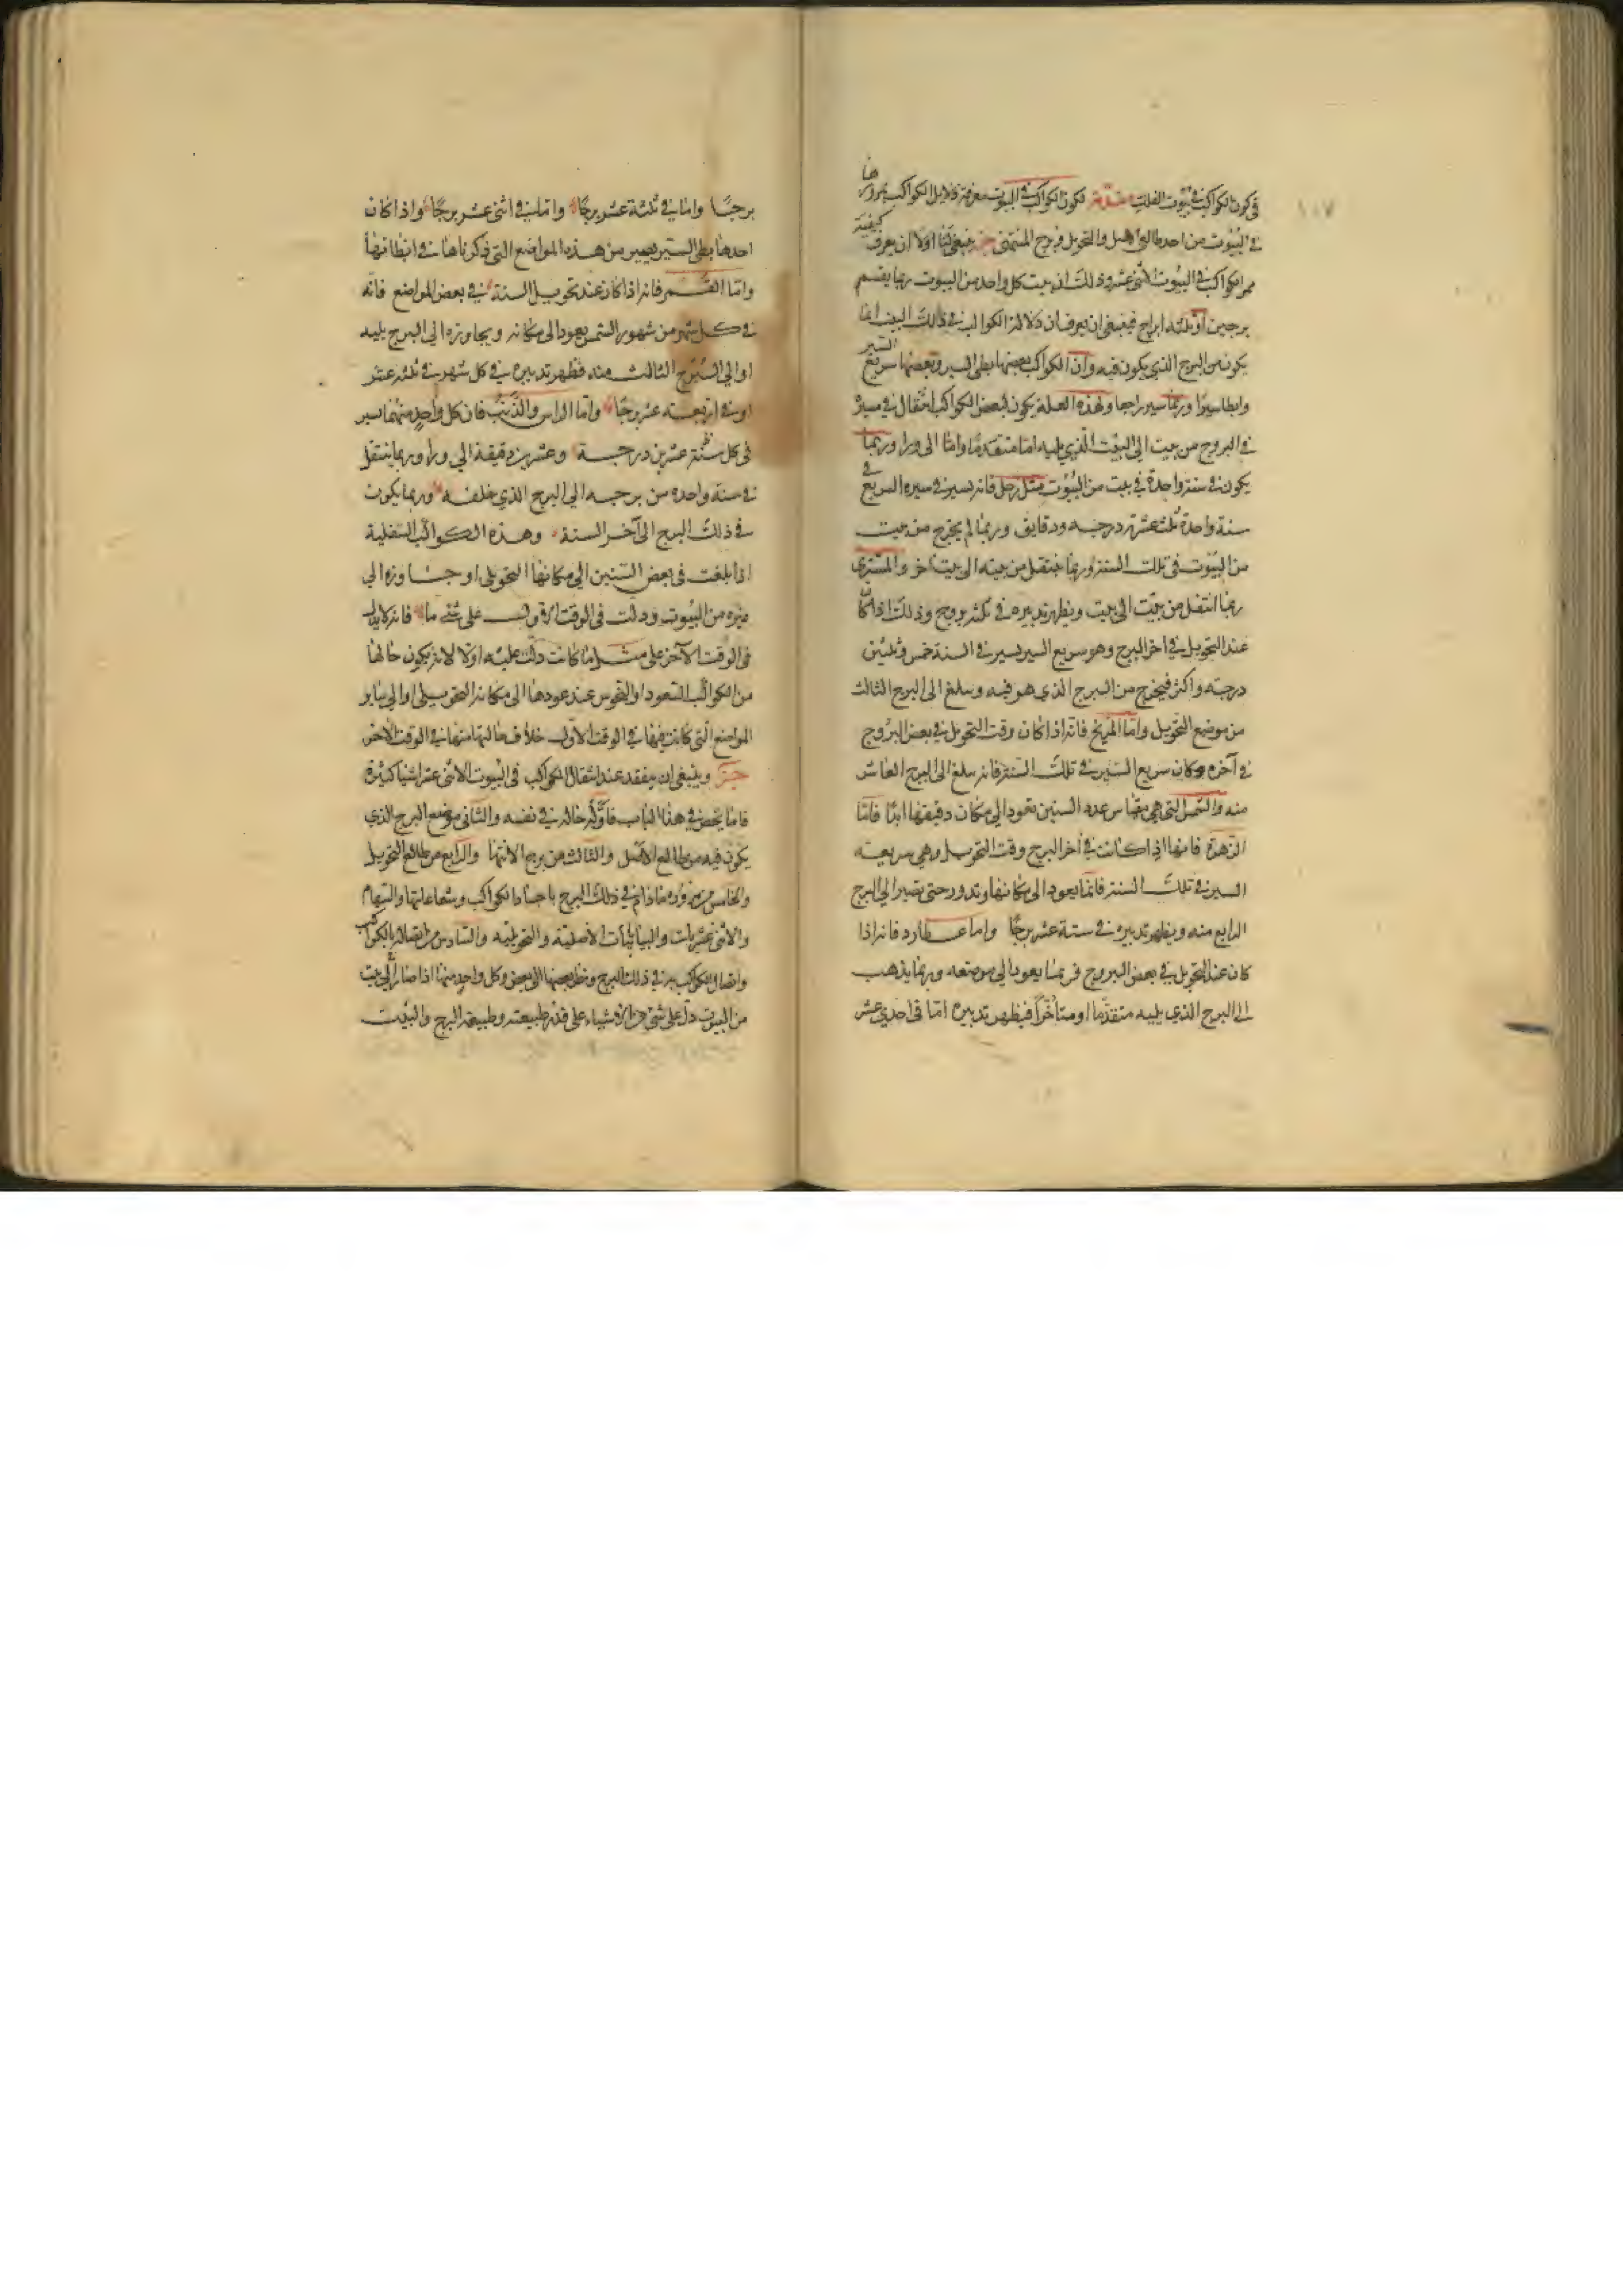 ١٠٧
في كون الكواكب في بيوت الفلك مقدمة لكون الكواكب في البيوت معرفة دلايل الكواكب بمرورها
في البيوت من احد طالعي الاصل والتحويل وبرج المنتهى ينبغي لنا اولا ان يعرف كيفية
ممر الكواكب في البيوت الاثنى عشر وذلك ان بيت كل واحد من البيوت ربما يقسم
برجين او ثلثة ابراج فينبغي ان يعرف ان دلالة الكواكب في ذلك البيت انما
يكون من البرج الذي يكون فيه وان الكواكب بعضها بطى السير وبعضها سريع السير
وابطا سيرا وربما سير راجعا ولهذه العلة يكون لبعض الكواكب انتقال في مسيره
في البروج من بيت الى البيت الذي يليه اما متقدما واما الى ورا وربما
يكون في سنة واحدة في بيت من البيوت مثل زحل فانه يسير في سيره السريع في
سنة واحدة ثلث عشرة درجه ودقايق وربما لم يخرج من بيت
من البيوت في تلك السنة وربما ينتقل من بيته الى بيت اخر والمشترى
ربما انتقل من بيت الى بيت ويظهر تدبيره في ثلثه بروج وذلك اذا كان
عند التحويل في اخر البرج وهو سريع السير يسير في السنة خمس وثلثين
درجه واكثر فيخرج من البرج الذي هو فيه ويبلغ الى البرج الثالث
من موضع التحويل واما المريخ فانه اذا كان وقت التحويل في بعض البروج
في آخره وكان سريع السير في تلك السنة فانه يبلغ الى البرج العاشر
منه والشمس التي هي مقياس عدد السنين تعود الى مكان دقيقتها ابدا فاما
الزهرة فانها اذا كانت في آخر البرج وقت التحويل وهي سريعه
السير في تلك السنة فانما يعود الى مكانها وتدور حتى تصير الى البرج
الرابع منه ويظهر تدبيره في ستة عشر برجا واما عطارد فانه اذا
كان عند التحويل في بعض البروج فربما يعود الى موضعه وربما يذهب
الى البرج الذي يليه متقدما او متأخرا فيظهر تدبيره اما في احدى عشر
برجا واما في ثلثة عشر برجا واما في اثنى عشر برجا واذا كان
احدها بطى السير يصير من هذه المواضع التي ذكرناها في ابطائها
واما القمر فانه اذا كان عند تحويل السنة في بعض المواضع فانه
في كل شهر من شهور الشمس يعود الى مكانه ويجاوزه الى البرج يليه
او الى البرج الثالث منه فظهر تدبيره في كل شهر في ثلثه عشر
او في اربعته عشر برجا واما الراس والذنب فان كل واحد منهما يسير
في كل سنة عشرين درجة وعشرين دقيقة الى ورا وربما ينتقل
في سنة واحده من برجه الى البرج الذي خلفه وربما يكون
في ذلك البرج الى آخر السنة وهذه الكواكب السفلية
اذا بلغت في بعض السنين الى مكانها التحويلى او جاوزه الى
غيره من البيوت ودلت في الوقت الاول على شئ ما فانه لا يدل
في الوقت الآخر على مثل ما كانت دلت عليه اولا لانه يكون حالها
من الكواكب السعود او النحوس عند عودها الى مكانه التحويلى او الى ساير
المواضع التي كانت فيها في الوقت الاول خلاف حالتها منها في الوقت الآخر
وينبغى ان يتفقد عند انتقال الكواكب في البيوت الاثنى عشر اشيا كثيرة
فاما يخص في هذا الباب فاوله حاله في نفسه والثاني موضع البرج الذي
يكون فيه من طالع الاصل والثالث من برج الانتها والرابع من طالع التحويل
والخامس مروره ما دام في ذلك البرج باجساد الكواكب وشعاعاتها والسهام
والاثنى عشريات والبيابانيات الاصلية والتحويليه والسادس من اتصاله بالكواكب
واتصال الكواكب به في ذلك البرج ونظر بعضها الى بعض وكل واحد منها اذا صار الى بيت
من البيوت دل على شئ من الاشياء على قدر طبيعته وطبيعة البرج والبيت